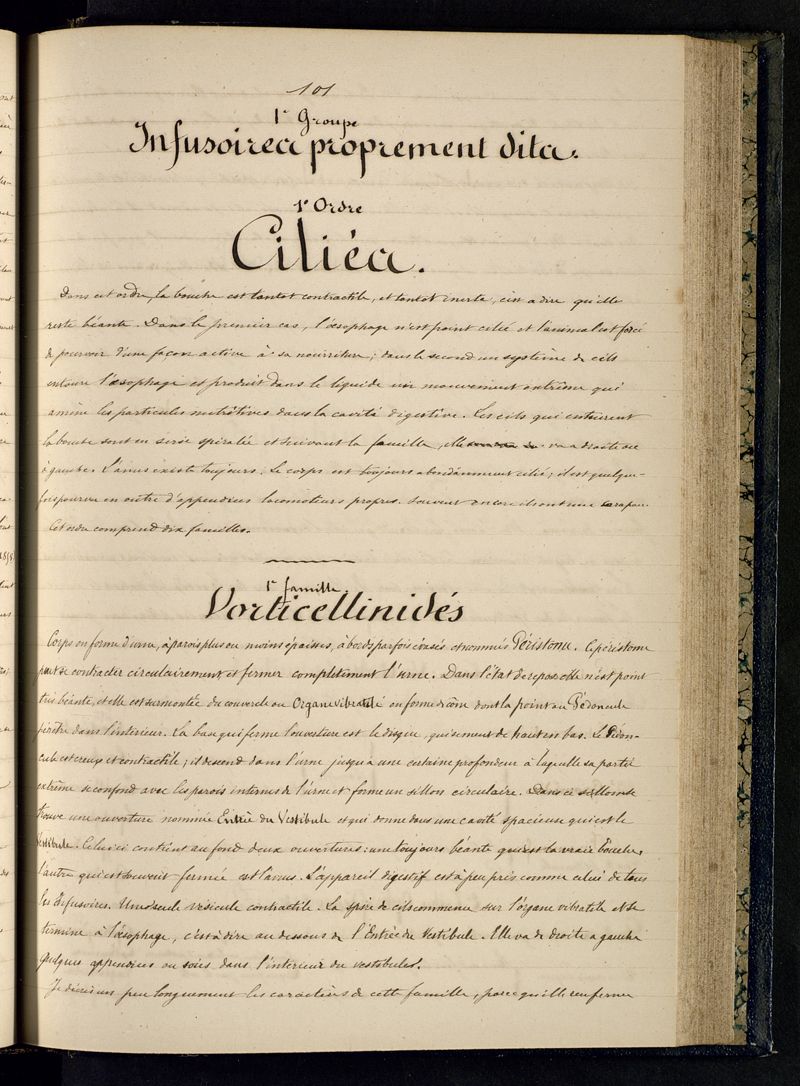 101
1r Groupe
Infusoires proprement dits.
1r Ordre
Ciliés.
Dans cet ordre, la bouche est tantot contractile, et tantot inerte, c'est a dire qu'elle
reste béante. Dans le premier cas, l'œsophage n'est point cilié et l'animal est forcé
de pourvoir d'une façon active à sa nourriture; dans le second un système de cils
entoure l'œsophage et produit dans le liquide un mouvement extrême qui
amène les particules nutritives dans la cavité digestive. Les cils qui entourent
la bouche sont en serie spiralée et suivant la famille, elle va a droite ou
à gauche. L'anus existe toujours. Le corps est toujours abondamment cilié; il est quelque-
fois pourvu en outre d'appendices locomoteurs propres. Souvent encore ils ont une carapace.
Cet ordre comprend dix familles.
1r famille.
Vorticellinidés
Corps en forme d'urne, à parois plus ou moins épaisses, à bords parfois évasés et nommés Péristome. Ce péristome
peut se contracter circulairement et fermer complètement l'urne. Dans l'état de repos elle n'est point
très béante, et elle est surmontée du couvercle ou Organe vibratile en forme de cône dont la pointe au Pédoncule
pénètre dans l'intérieur. La base qui ferme l'ouverture est le disque, qui se ment de haut en bas. Le Pédon-
cule est creux et contractile; il descend dans l'urne jusqu'a une certaine profondeur à laquelle sa partie
extrême se confond avec les parois internes de l'urne et forme un sillon circulaire. Dans ce sillon se
trouve une ouverture nommée Entrée du Vestibule et qui donne dans une cavité spacieuse qui est le
Vestibule. Celui ci contient au fond deux ouvertures: une toujours béante qui est la vraie Bouche,
l'autre qui est souvent fermée est l'anus. L'appareil digestif est à peu près comme celui de tous
les Infusoires. Une seule vésicule contractile. La spire de cils commence sur l'organe vibratile et se
termine à l'œsophage, c'est à dire au dessous de l'Entrée du Vestibule. Elle va de droite a gauche
quelques appendices ou soies dans l'interieur du vestibule.
Je décris un peu longuement les caractères de cette famille, parce qu'elle renferme